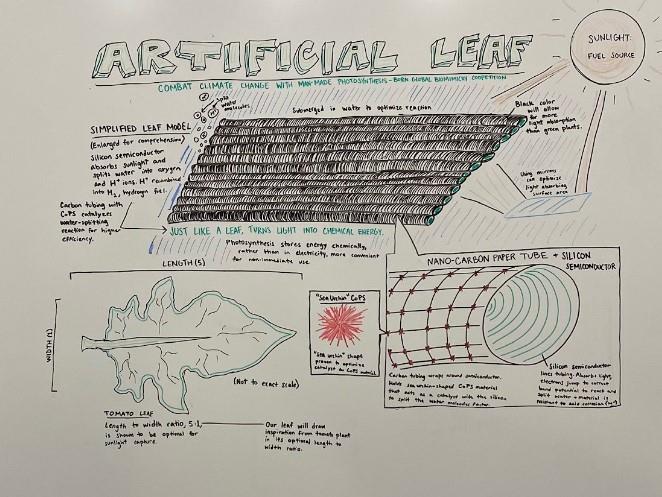 ARTIFICIAL LEAF
COMBAT CLIMATE CHANGE WITH MAN-MADE PHOTOSYNTHESIS - BORN GLOBAL BIOMIMICRY COMPETITION
SUNLIGHT:
FUEL SOURCE
Split
water
molecules
Submerged in water to optimize reaction
Black color
will allow
for more
light absorption
than green plants.
SIMPLIFIED LEAF MODEL
(Enlarged for comprehension)
Silicon semiconductor
absorbs sunlight and
splits water into oxygen
and H⁺ ions. H⁺ recombined
into H₂, hydrogen fuel.
Using mirrors
can optimize
light absorbing
surface area
Carbon tubing with
CoPS catalyzes
water-splitting
reaction for higher
efficiency.
JUST LIKE A LEAF, TURNS LIGHT INTO CHEMICAL ENERGY.
Photosynthesis stores energy chemically,
rather than in electricity, more convenient
for non-immediate use.
LENGTH (5)
WIDTH (1)
(Not to exact scale)
"Sea Urchin" CoPS
"Sea urchin" shape
proven to optimize
catalyst for CoPS material
NANO-CARBON PAPER TUBE + SILICON
SEMICONDUCTOR
Carbon tubing wraps around semiconductor.
Holds sea urchin-shaped CoPS material
that acts as a catalyst with the silicon
to split the water molecules faster.
Silicon semiconductor
lines tubing. Absorbs light,
electrons jump to correct
band potential to react and
split water + material is
resistant to acid corrosion
TOMATO LEAF
Length to width ratio, 5:1,
is shown to be optimal for
sunlight capture.
Our leaf will draw
inspiration from tomato plant
in its optimal length to
width ratio.